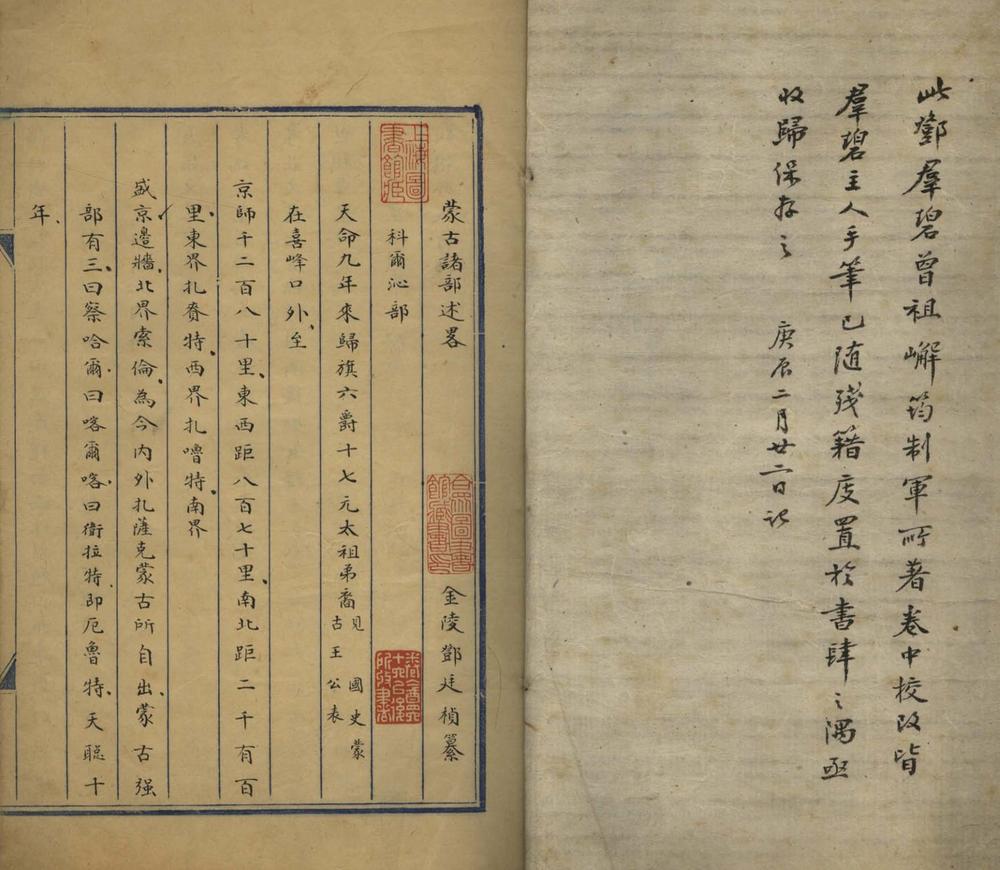 此鄧羣碧曾祖嶰筠制軍所著卷中校改皆
羣碧主人手筆已随殘籍庋置於書肆之隅亟
收歸保存之　庚辰二月廿二日記
蒙古諸部述畧　金陵鄧廷楨纂
科爾沁部
天命九年來歸旗六爵十七元太祖弟裔見國史蒙古王公表
在喜峰口外、至
京師千二百八十里、東西距八百七十里、南北距二千有百
里、東界扎賚特、西界扎嚕特、南界
盛京邊牆、北界索倫、為今内外扎薩克蒙古所自出、蒙古强
部有三、曰察哈爾、曰喀爾喀、曰衛拉特、即厄魯特、天聰十
年、
上海圖書館藏